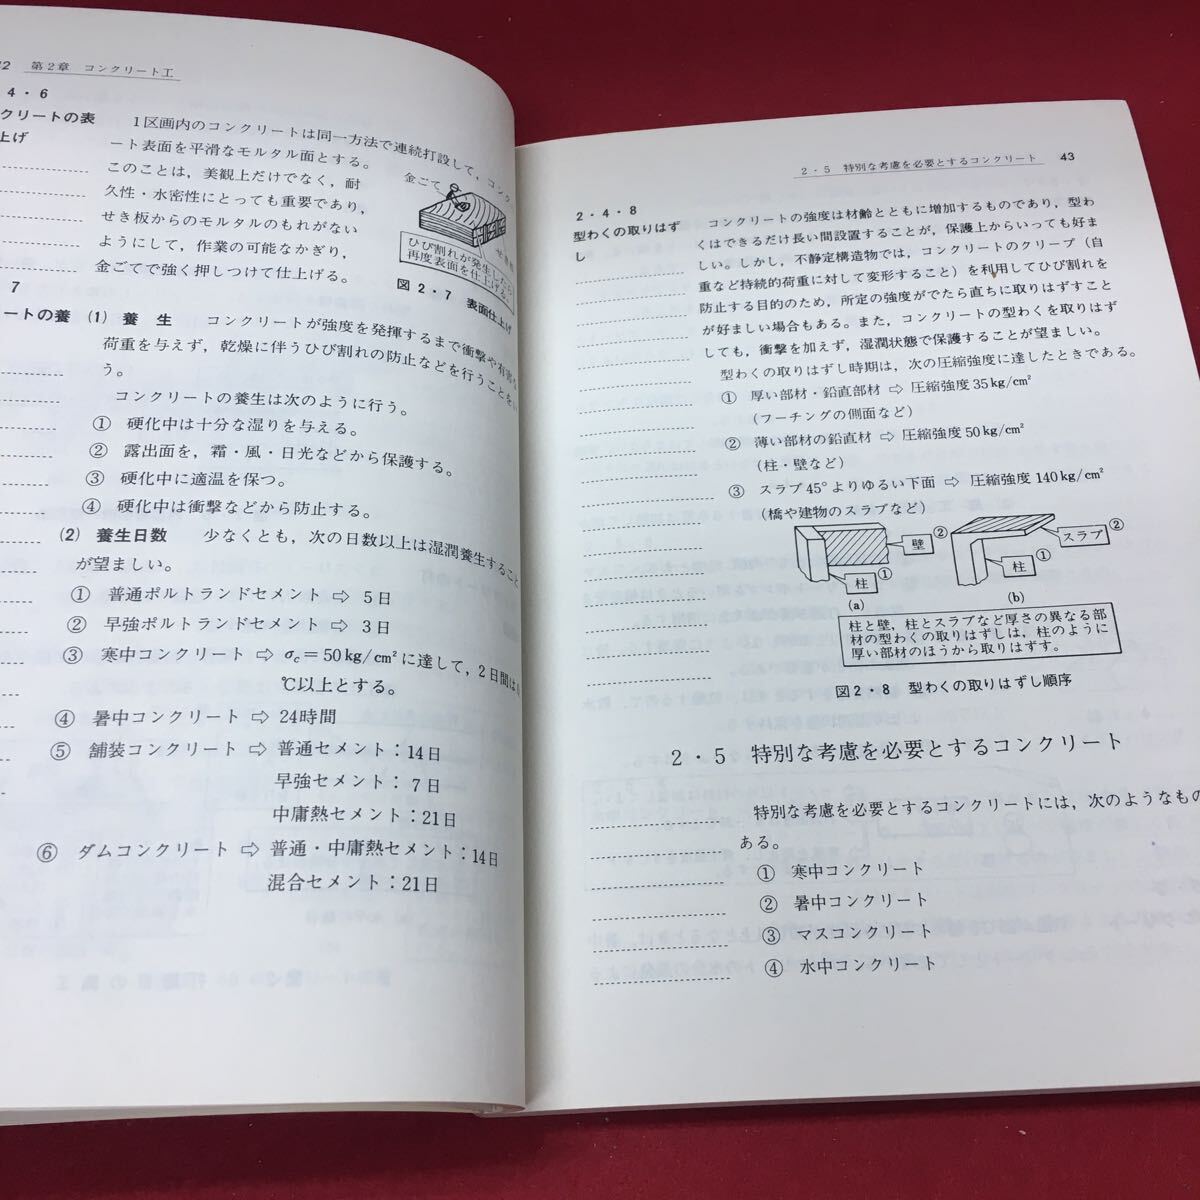 42 第2章 コンクリート工
4・6
クリートの表
上げ
1区画内のコンクリートは同一方法で連続打設して，コンク
ート表面を平滑なモルタル面とする。
このことは，美観上だけでなく，耐
久性・水密性にとっても重要であり，
せき板からのモルタルのもれがない
ようにして，作業の可能なかぎり，
金ごてで強く押しつけて仕上げる。
金ごて
せき板
ひび割れが発生したら
再度表面を仕上げる。
図 2・7 表面仕上げ
7
ートの養
(1) 養 生 コンクリートが強度を発揮するまで衝撃や有害な
荷重を与えず，乾燥に伴うひび割れの防止などを行うことをい
う。
コンクリートの養生は次のように行う。
① 硬化中は十分な湿りを与える。
② 露出面を，霜・風・日光などから保護する。
③ 硬化中に適温を保つ。
④ 硬化中は衝撃などから防止する。
(2) 養生日数 少なくとも，次の日数以上は湿潤養生すること
が望ましい。
① 普通ポルトランドセメント ⇨ 5日
② 早強ポルトランドセメント ⇨ 3日
③ 寒中コンクリート ⇨ σc＝50kg/cm²に達して，2日間は
℃以上とする。
④ 暑中コンクリート ⇨ 24時間
⑤ 舗装コンクリート ⇨ 普通セメント：14日
早強セメント：7日
中庸熱セメント：21日
⑥ ダムコンクリート ⇨ 普通・中庸熱セメント：14日
混合セメント：21日
2・5 特別な考慮を必要とするコンクリート 43
2・4・8
型わくの取りはず
し
コンクリートの強度は材齢とともに増加するものであり，型わ
くはできるだけ長い間設置することが，保護上からいっても好ま
しい。しかし，不静定構造物では，コンクリートのクリープ（自
重など持続的荷重に対して変形すること）を利用してひび割れを
防止する目的のため，所定の強度がでたら直ちに取りはずすこと
が好ましい場合もある。また，コンクリートの型わくを取りはず
しても，衝撃を加えず，湿潤状態で保護することが望ましい。
型わくの取りはずし時期は，次の圧縮強度に達したときである。
① 厚い部材・鉛直部材 ⇨ 圧縮強度35kg/cm²
（フーチングの側面など）
② 薄い部材の鉛直材 ⇨ 圧縮強度50kg/cm²
（柱・壁など）
③ スラブ45°よりゆるい下面 ⇨ 圧縮強度140kg/cm²
（橋や建物のスラブなど）
壁 ②
柱 ①
(a)
スラブ ②
柱 ①
(b)
柱と壁，柱とスラブなど厚さの異なる部
材の型わくの取りはずしは，柱のように
厚い部材のほうから取りはずす。
図2・8 型わくの取りはずし順序
2・5 特別な考慮を必要とするコンクリート
特別な考慮を必要とするコンクリートには，次のようなもの
ある。
① 寒中コンクリート
② 暑中コンクリート
③ マスコンクリート
④ 水中コンクリート